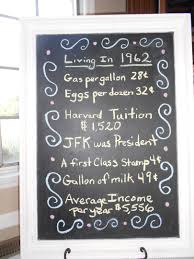 Living In 1962
Gas per gallon 28¢
Eggs per dozen 32¢
Harvard Tuition
$1,520
JFK was President
A first Class Stamp 4¢
Gallon of milk 49¢
Average Income
per year $5,556